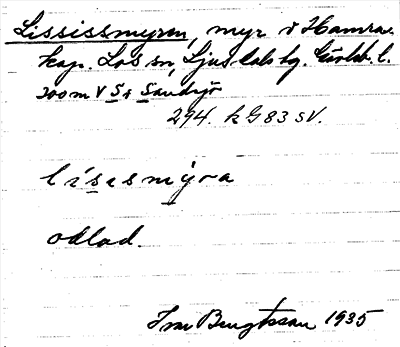 Lississmyren, myr i Hamra
kap. Los sn, Ljusdals tg. Gävleb. l.
200 m V S a Sandsjö
294. k G 83 SV.
lísɩsmyra
odlad.
Ivar Bengtsson 1935